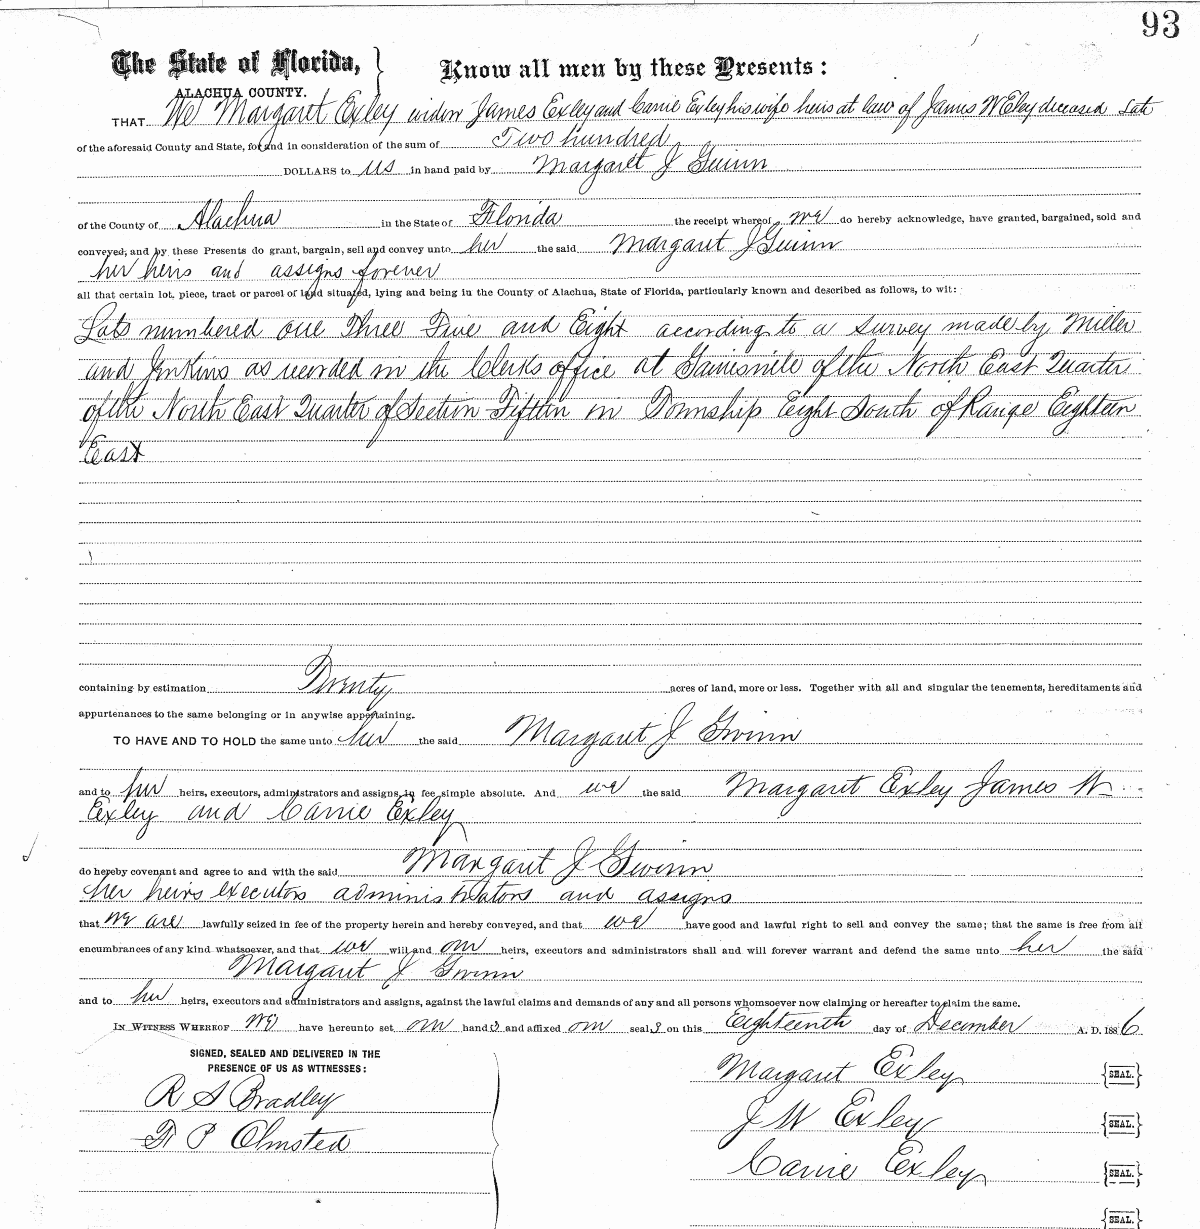 93
The State of Florida,
ALACHUA COUNTY.
Know all men by these Presents:
THAT We Margaret Exley widow James Exley and Carrie Exley his wife heirs at law of James W Exley deceased Late
of the aforesaid County and State, for and in consideration of the sum of Two hundred
DOLLARS to us in hand paid by Margaret J Gwinn
of the County of Alachua in the State of Florida the receipt whereof we do hereby acknowledge, have granted, bargained, sold and
conveyed, and by these Presents do grant, bargain, sell and convey unto her the said Margaret J Gwinn
her heirs and assigns forever
all that certain lot, piece, tract or parcel of land situated, lying and being in the County of Alachua, State of Florida, particularly known and described as follows, to wit:
Lots numbered one Three Five and Eight according to a survey made by Miller
and Jenkins as recorded in the Clerks office at Gainesville of the North East Quarter
of the North East Quarter of Section Fifteen in Township Eight South of Range Eighteen
East
containing by estimation Twenty acres of land, more or less. Together with all and singular the tenements, hereditaments and
appurtenances to the same belonging or in anywise appertaining.
TO HAVE AND TO HOLD the same unto her the said Margaret J Gwinn
and to her heirs, executors, administrators and assigns, in fee simple absolute. And we the said Margaret Exley James W
Exley and Carrie Exley
do hereby covenant and agree to and with the said Margaret J Gwinn
her heirs executors administrators and assigns
that we are lawfully seized in fee of the property herein and hereby conveyed, and that we have good and lawful right to sell and convey the same; that the same is free from all
encumbrances of any kind whatsoever, and that we will and our heirs, executors and administrators shall and will forever warrant and defend the same unto her the said
Margaret J Gwinn
and to her heirs, executors and administrators and assigns, against the lawful claims and demands of any and all persons whomsoever now claiming or hereafter to claim the same.
IN WITNESS WHEREOF we have hereunto set our hands and affixed our seals on this Eighteenth day of December A. D. 1886
SIGNED, SEALED AND DELIVERED IN THE
PRESENCE OF US AS WITNESSES:
R S Bradley
P Olmsted
Margaret Exley SEAL.
J W Exley SEAL.
Carrie Exley SEAL.
SEAL.